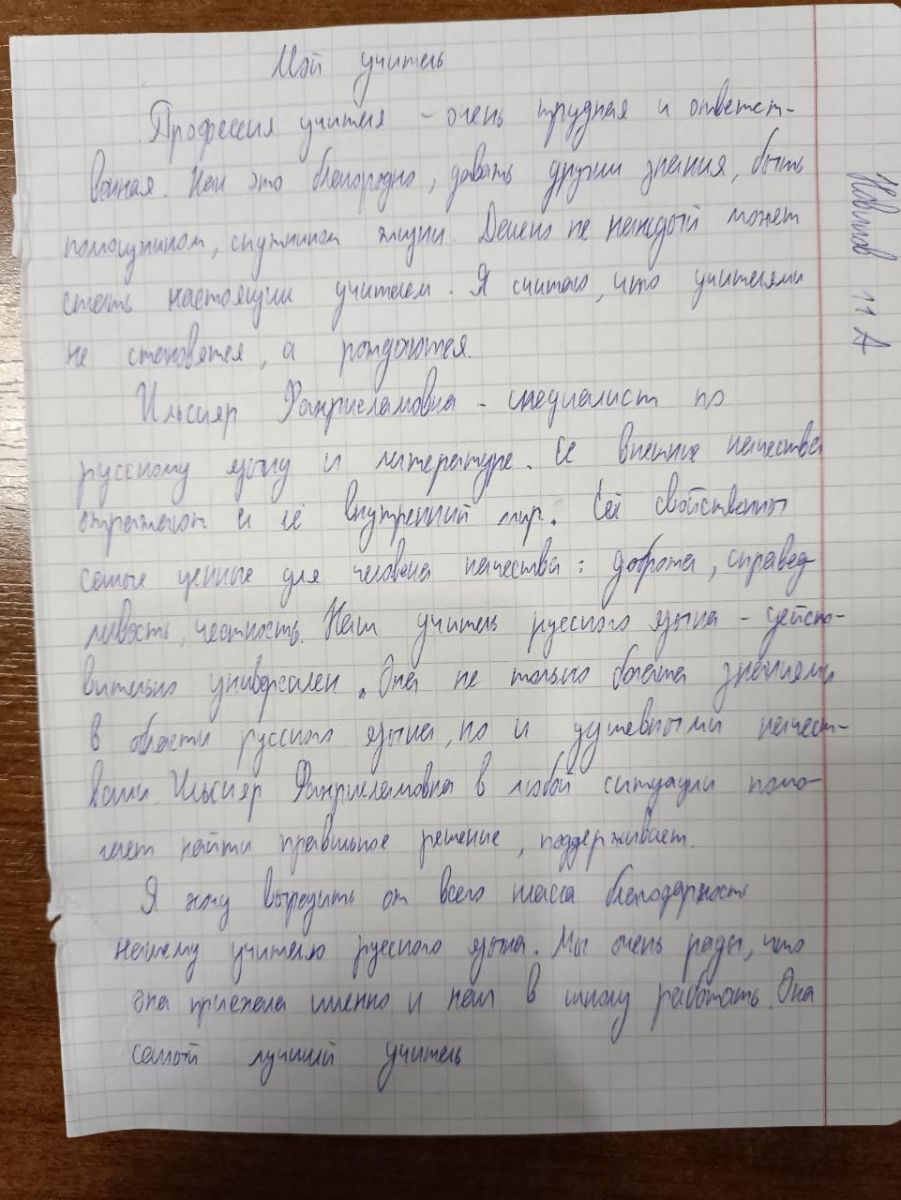 Мой учитель
Профессия учителя - очень трудная и ответст-
венная. Как это благородно, давать другим знания, быть
помощником, спутником жизни. Далеко не каждый может
стать настоящим учителем. Я считаю, что учителями
не становятся, а рождаются.
Ильсияр Фанрисламовна - специалист по
русскому языку и литературе. Её внешние качества
отражают и её внутренний мир. Ей свойственны
самые ценные для человека качества: доброта, справед
ливость, честность. Наш учитель русского языка - дейст-
вительно универсален. Она не только богата знаниями
в области русского языка, но и душевными качест-
вами. Ильсияр Фанрисламовна в любой ситуации помо-
гает найти правильное решение, поддерживает.
Я хочу выразить от всего класса благодарность
нашему учителю русского языка. Мы очень рады, что
она приехала именно к нам в школу работать. Она
самый лучший учитель
11 А